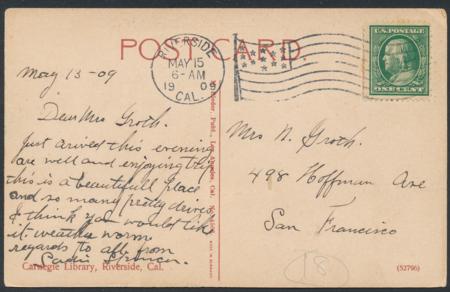 POST CARD
RIVERSIDE
MAY 15
6-AM
1909
CAL.
U.S. POSTAGE
ONE CENT
May 15-09
Dear Mrs Groth.
Just arived this evening
are well and enjoying trip
this is a beautifull place
and so many pretty drives
I think you would like
it. weather warm
regards to all from
Sadie
Carnegie Library, Riverside, Cal.
Publ., Los Angeles, Cal.
Mrs N. Groth.
498 Hoffman Ave
San Francisco
18
(52796)